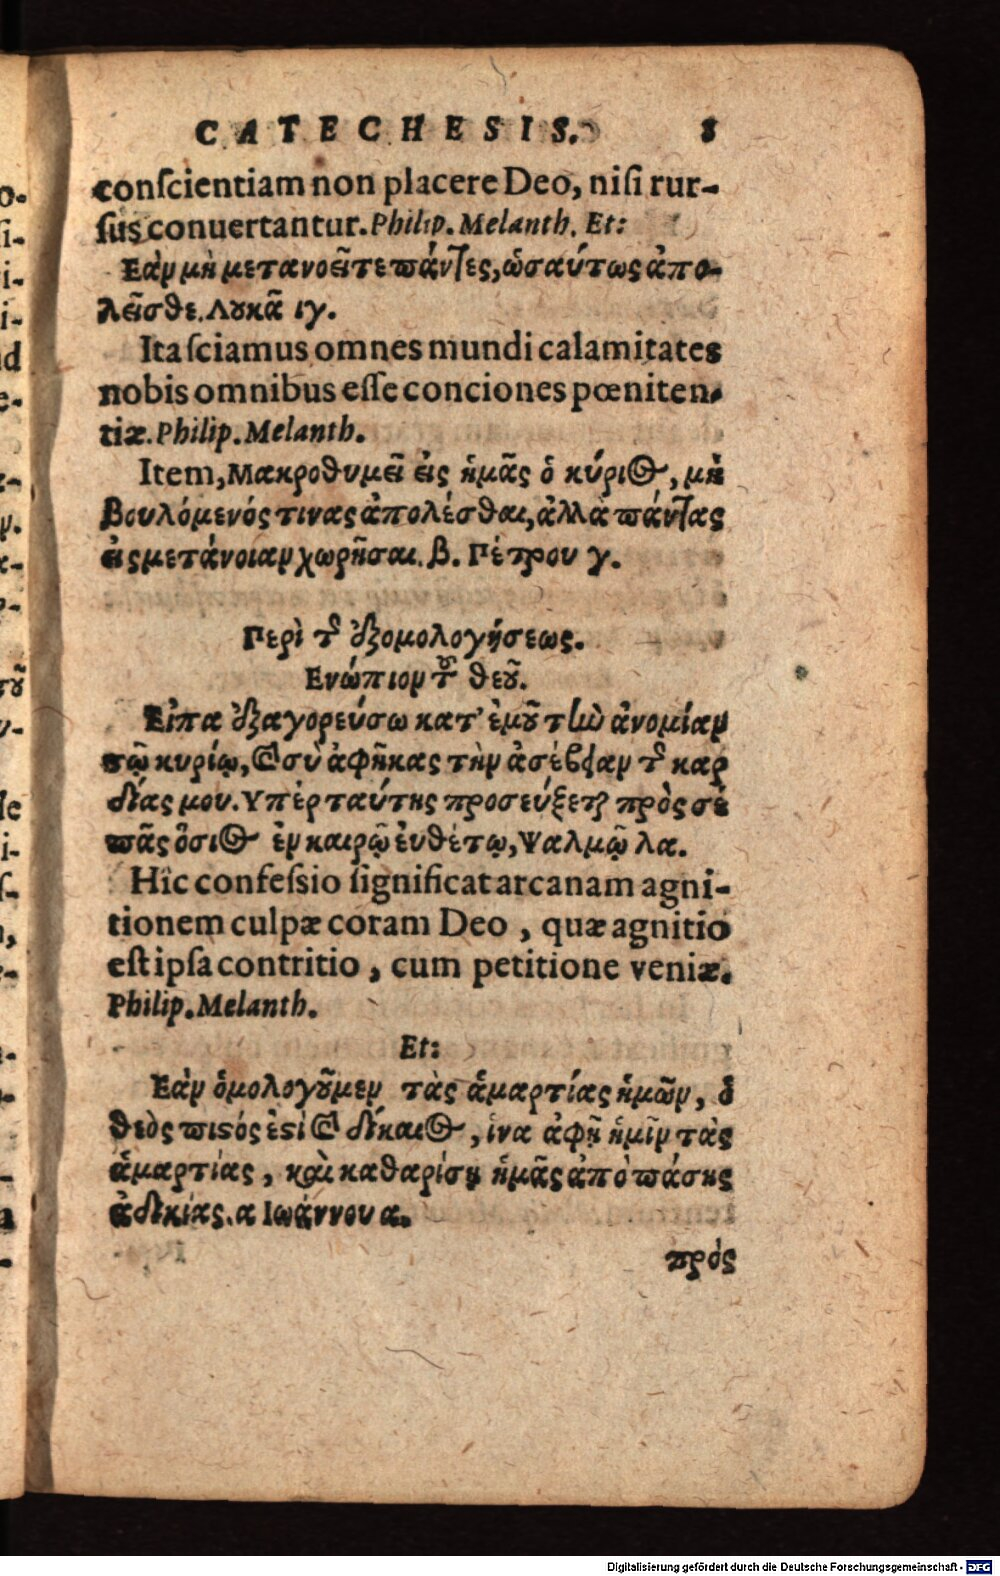 CATECHESIS. 8
conſcientiam non placere Deo, niſi rur-
ſus conuertantur. Philip. Melanth. Et:
Εὰν μὴ μετανοεῖτε πάντες, ὡσαύτως ἀπο-
λεῖσθε. Λουκᾶ ιγ.
Ita ſciamus omnes mundi calamitates
nobis omnibus eſſe conciones pœniten-
tiæ. Philip. Melanth.
Item, Μακροθυμεῖ εἰς ἡμᾶς ὁ κύριος, μὴ
βουλόμενός τινας ἀπολέσθαι, ἀλλὰ πάντας
εἰς μετάνοιαν χωρῆσαι. β. Πέτρου γ.
Περὶ τῆς ἐξομολογήσεως.
Ενώπιον τοῦ θεοῦ.
Εἶπα ἐξαγορεύσω κατ' ἐμοῦ τὴν ἀνομίαν
τῷ κυρίῳ, καὶ σὺ ἀφῆκας τὴν ἀσέβειαν τῆς καρ
δίας μου. Υπὲρ ταύτης προσεύξεται πρὸς σὲ
πᾶς ὅσιος ἐν καιρῷ ἐυθέτῳ, Ψαλμῷ λα.
Hîc confeſsio ſignificat arcanam agni-
tionem culpæ coram Deo, quæ agnitio
eſt ipſa contritio, cum petitione veniæ.
Philip. Melanth.
Et:
Εὰν ὁμολογοῦμεν τὰς ἁμαρτίας ἡμῶν, ὁ
θεὸς πιςός ἐςὶ καὶ δίκαιος, ἵνα ἀφῇ ἡμῖν τὰς
ἁμαρτίας, καὶ καθαρίσῃ ἡμᾶς ἀπὸ πάσης
ἀδικίας. α Ιωάννου α.
πρὸς
Digitalisierung gefördert durch die Deutsche Forschungsgemeinschaft - DFG